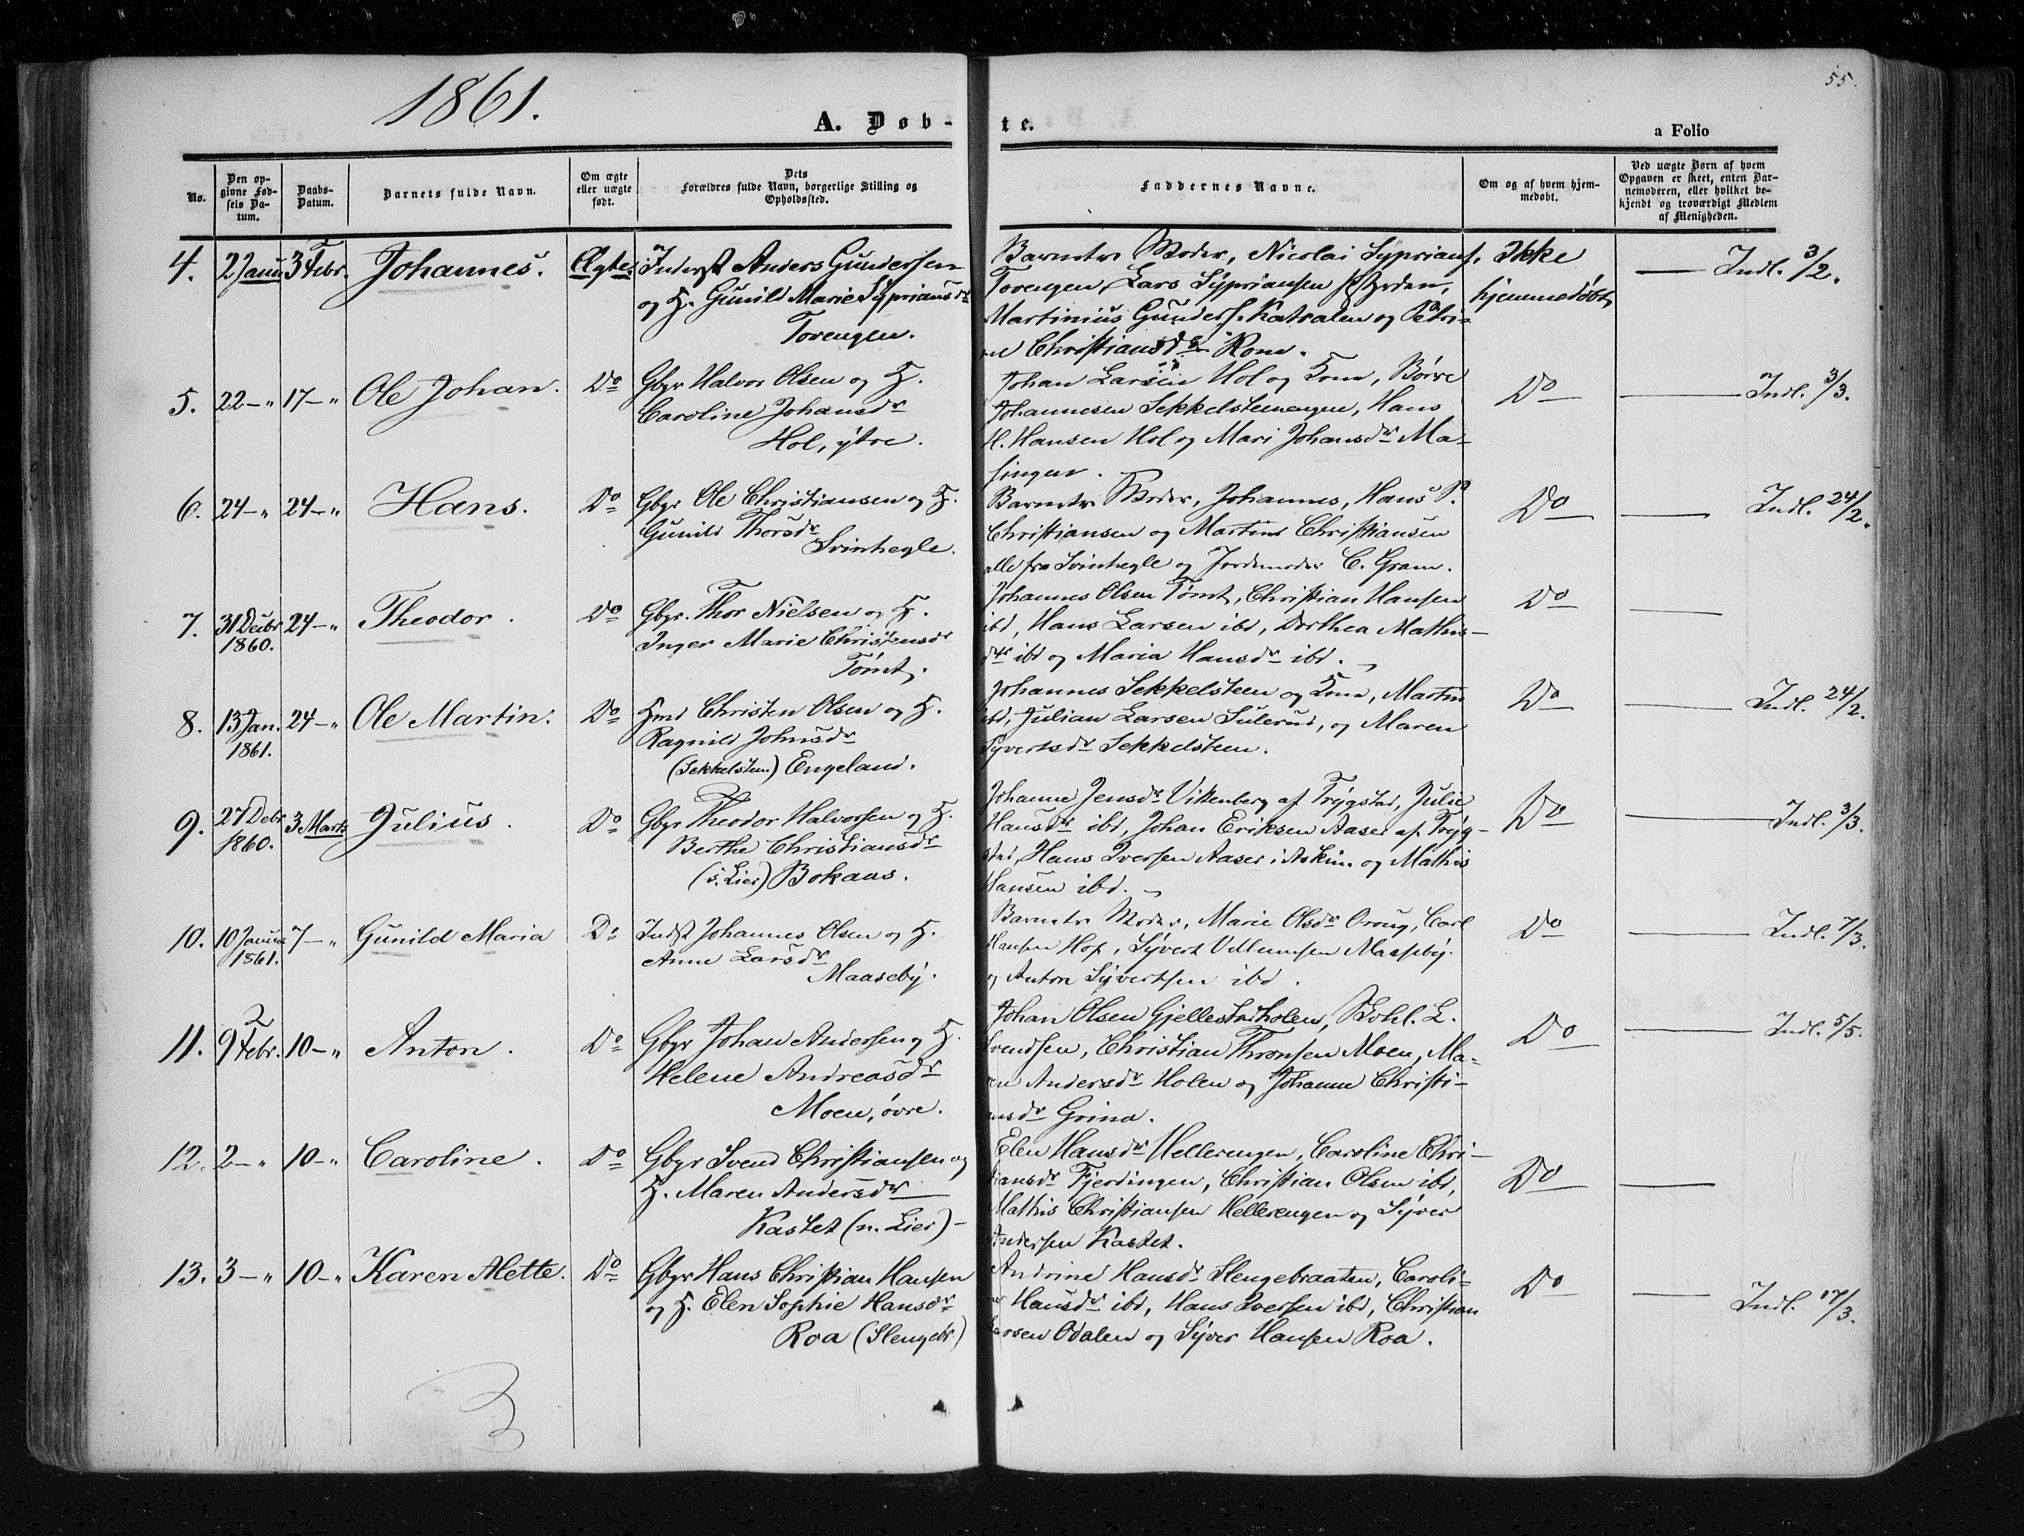 1861.
55.
A. Døb-
te.
a Folio
No.
Den op-
givne Fød-
sels Da-
tum.
Daabs-
Datum.
Barnets fulde Navn.
Om ægte
eller uægte
født.
Dets
Forældres fulde Navn, borgerlige Stilling og
Opholdssted.
Faddernes Navne.
Om og af hvem hjem-
medøbt.
Ved uægte Børn af hvem
Opgaven er skeet, enten Bar-
nemoderen, eller hvilket be-
kjendt og troværdigt Medlem
af Menigheden.
4. 2 Janu. 3 Febr. Johannes. Ægte
Inderst Anders Gundersen
og H. Gunild Marie Syprians dr
Torengen.
Barnets Moder, Nicolai Syprians.
Torengen, Lars Sypriansen
Martinius Gunders. Katralen og Petri-
ne Christiansdr Kone.
Ikke
hjemmedøbt
Indl. 3/2.
5. 22 — " 17 — " Ole Johan. Do
Gbgr Halvor Olsen og H.
Caroline Johansdr
Hol, ytre.
Johan Larsen Hol og Kone, Børre
Johannesen Sekkelsteenengen, Hans
H. Hansen Hol og Mari Johansdr Ma-
singen.
Do
Indl. 3/3.
6. 24 — " 24 — " Hans. Do
Gbgr Ole Christiansen og H.
Gunild Thorsdr
Svinhegle.
Barnets Moder, Johannes, Hans P.
Christiansen og Martins Christiansen
alle fra Svinhegle og Jordemoder C. Gram.
Do
Indl. 24/2.
7. 31 Decbr 1860. 24 — " Theodor. Do
Gbgr. Thor Nielsen og H.
Inger Marie Christensdr
Tømt.
Johannes Olsen Tømt, Christian Hansen
ibd, Hans Larsen ibd, Dorthea Mathis-
dtr ibd og Maria Hansdr ibd.
Do
8. 13 Jan. 1861. 24 — " Ole Martin. Do
Hmd Christen Olsen og H.
Ragnild Johnsdr
(Sekkelsteen) Engeland.
Johannes Sekkelsteen og Kone, Martin
ibd, Julian Larsen Sulerud, og Maren
Syvertsdr Sekkelsteen.
Do
Indl. 24/2.
9. 27 Debr 1860. 3 Marts Julius. Do
Gbgr Theodor Halvorsen og H.
Berthe Christiansdr
(s. Lier) Bokaas.
Johanne Jensdr Vikenberg af Trygstad, Julie
Hansdr ibd, Johan Eriksen Aaser af Tryg-
stad, Hans Iversen Aaser i Askim og Mathis
Hansen ibd.
Do
Indl. 3/3.
10. 10 Janua 1861. 7 — " Gunild Maria Do
Indst Johannes Olsen og H.
Anne Larsdr
Maaseby.
Barnets Moder, Marie Olsdr Oroug, Carl
Hansen Hof, Syvert Villumsen Maaseby
og Anton Syvertsen ibd.
Do
Indl. 7/3.
11. 2
9 Febr. 10 — " Anton. Do
Gbgr Johan Andersen og H.
Helene Andreasdr
Moen, øvre.
Johan Olsen Gjellestadholen, Bohl. L.
Svendsen, Christian Thronsen Moen, Ma-
ren Andersdr Holen og Johanne Christi-
ansdr Grina.
Do
Indl. 5/5.
12. 2 — " 10 — " Caroline. Do
Gbgr Svend Christiansen og
H. Maren Andersdr
Kastet (n. Lier) —
Elen Hansdr Hellerengen, Caroline Chri-
stiansdr Fjerdingen, Christian Olsen ibd,
Mathis Christiansen Hellerengen og Syver
Andersen Kastet.
Do
13. 3 — " 10 — " Karen Alette. Do
Gbgr Hans Christian Hansen
og H. Elen Sophie Hansdr
Roa (Slengebr)
Andrine Hansdr Slengebraaten, Caroli-
ne Hansdr ibd, Hans Iversen ibd, Christian
Larsen Odalen og Syver Hansen Roa.
Do
Indl. 17/3.